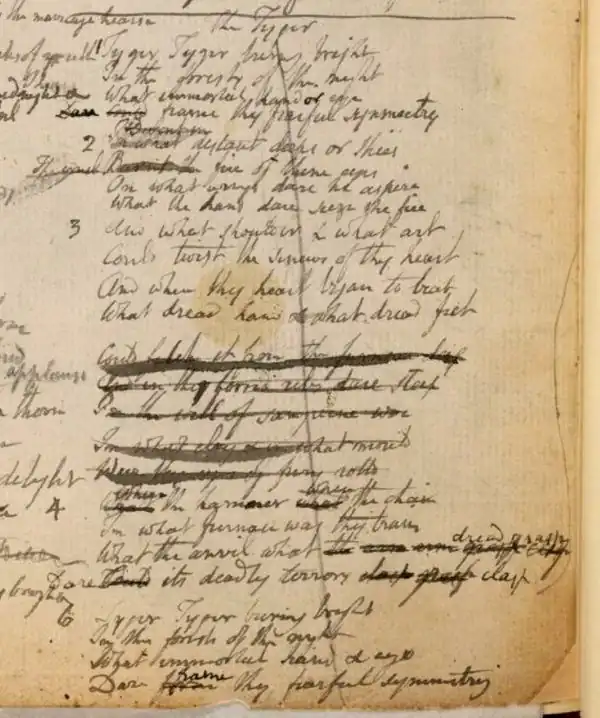 the marriage hearse
The Tyger
1 Tyger Tyger burning bright
In the forests of the night
What immortal hand or eye
Dare could frame thy fearful symmetry
Burnt in
2 In what distant deeps or skies
The cruel Burnt the fire of thine eyes
On what wings dare he aspire
What the hand dare sieze the fire
3 And what shoulder & what art
Could twist the sinews of thy heart
And when thy heart began to beat
What dread hand & what dread feet
Could fetch it from the furnace deep
And in thy horrid ribs dare steep
applause
In the well of sanguine woe
thorn
In what clay & in what mould
Were thy eyes of fury rolld
delight
Where where
4 What the hammer what the chain
In what furnace was thy brain
dread grasp
What the anvil what the arm arm grasp clasp
Dare Could its deadly terrors clasp grasp clasp
bought
6 Tyger Tyger burning bright
In the forests of the night
What immortal hand & eye
frame
Dare form thy fearful symmetry